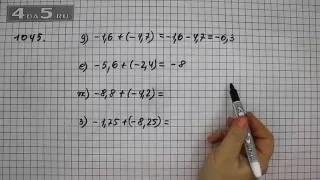 4DA5.RU
1045.
д) -1,6 + (-4,7) = -1,6 - 4,7 = -6,3
е) -5,6 + (-2,4) = -8
ж) -8,8 + (-4,2) =
з) -1,75 + (-8,25) =